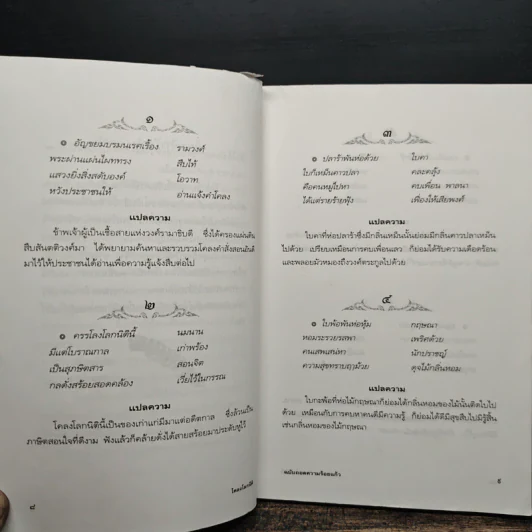 ๑
๏ อัญขยมบรมนเรศเรื้อง รามวงศ์
พระผ่านแผ่นไผททรง สืบไท้
แสวงยิ่งสิ่งสดับองค์ โอวาท
หวังประชาชนให้ อ่านแจ้งคำโคลง
แปลความ
ข้าพเจ้าผู้เป็นเชื้อสายแห่งวงศ์รามาธิบดี ซึ่งได้ครองแผ่นดิน
สืบสันตติวงศ์มา ได้พยายามค้นหาและรวบรวมโคลงคำสั่งสอนอันดี
มาไว้ให้ประชาชนได้อ่านเพื่อความรู้แจ้งสืบต่อไป
๒
๏ ครรโลงโลกนิตินี้ นมนาน
มีแต่โบราณกาล เก่าพร้อง
เป็นสุภาษิตสาร สอนจิต
กลดั่งสร้อยสอดคล้อง เวี่ยไว้ในกรรณ
แปลความ
โคลงโลกนิตินี้เป็นของเก่าแก่มีมาแต่อดีตกาล ซึ่งล้วนเป็น
ภาษิตสอนใจที่ดีงาม ฟังแล้วก็คล้ายดั่งได้สายสร้อยมาประดับหูไว้
๘
โคลงโลกนิติ
๓
๏ ปลาร้าพันห่อด้วย ใบคา
ใบก็เหม็นคาวปลา คละคลุ้ง
คือคนหมู่ไปหา คบเพื่อน พาลนา
ได้แต่ร้ายร้ายฟุ้ง เฟื่องให้เสียพงศ์
แปลความ
ใบคาที่ห่อปลาร้าซึ่งมีกลิ่นเหม็นนั้นย่อมมีกลิ่นคาวปลาเหม็น
ไปด้วย เปรียบเหมือนการคบเพื่อนเลว ก็ย่อมได้รับความเดือดร้อน
และพลอยมัวหมองถึงวงศ์ตระกูลไปด้วย
๔
๏ ใบพ้อพันห่อหุ้ม กฤษณา
หอมระรวยรสพา เพริศด้วย
คนเสพเสน่หา นักปราชญ์
ความสุขซาบฤๅม้วย ดุจไม้กลิ่นหอม
แปลความ
ใบกะพ้อที่ห่อไม้กฤษณาก็ย่อมได้กลิ่นหอมของไม้นั้นติดไป
ด้วย เหมือนกับการคบหาคนดีมีความรู้ ก็ย่อมได้ดีมีสุขสืบไปมิรู้สิ้น
เช่นกลิ่นหอมของไม้กฤษณา
ฉบับถอดความร้อยแก้ว
๙